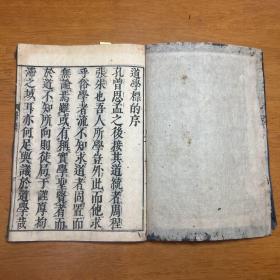 道學標的序
孔曾思孟之後接其道統者周程
張朱也吾人所學豈外此而他求
乎俗學者流不知求道者固置而
無論焉雖或有稱實學聖賢者而
於道不知所向則徒局于謹厚拘
滯之域耳亦何足與議於道學哉